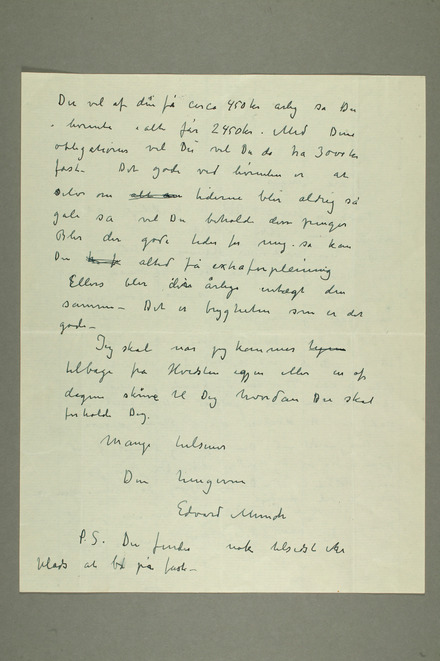 Du vil af den få circa 450kr årlig så Du
i livrente ialt får 2450kr. Med Dine
obligationer vil Du vil Du da ha 3000kr
fast. Det gode ved livrenten er at
selv om tiderne blir aldrig så
gale så vil Du beholde dine penger
Blir der gode tider for mig så kan
Du altid få extraforpleining
Ellers blir årlige indtægt den
samme – Det er trygheten som er det
gode –
Jeg skal når jeg kommer hjem
tilbage fra Hvidsten igjen eller en af
dagene skrive til Dig hvordan Du skal
forholde Dig.
Mange hilsener
Din hengivne
Edvard Munch
P.S. Du finder nok tilsidst et
Plads at bo på fast –